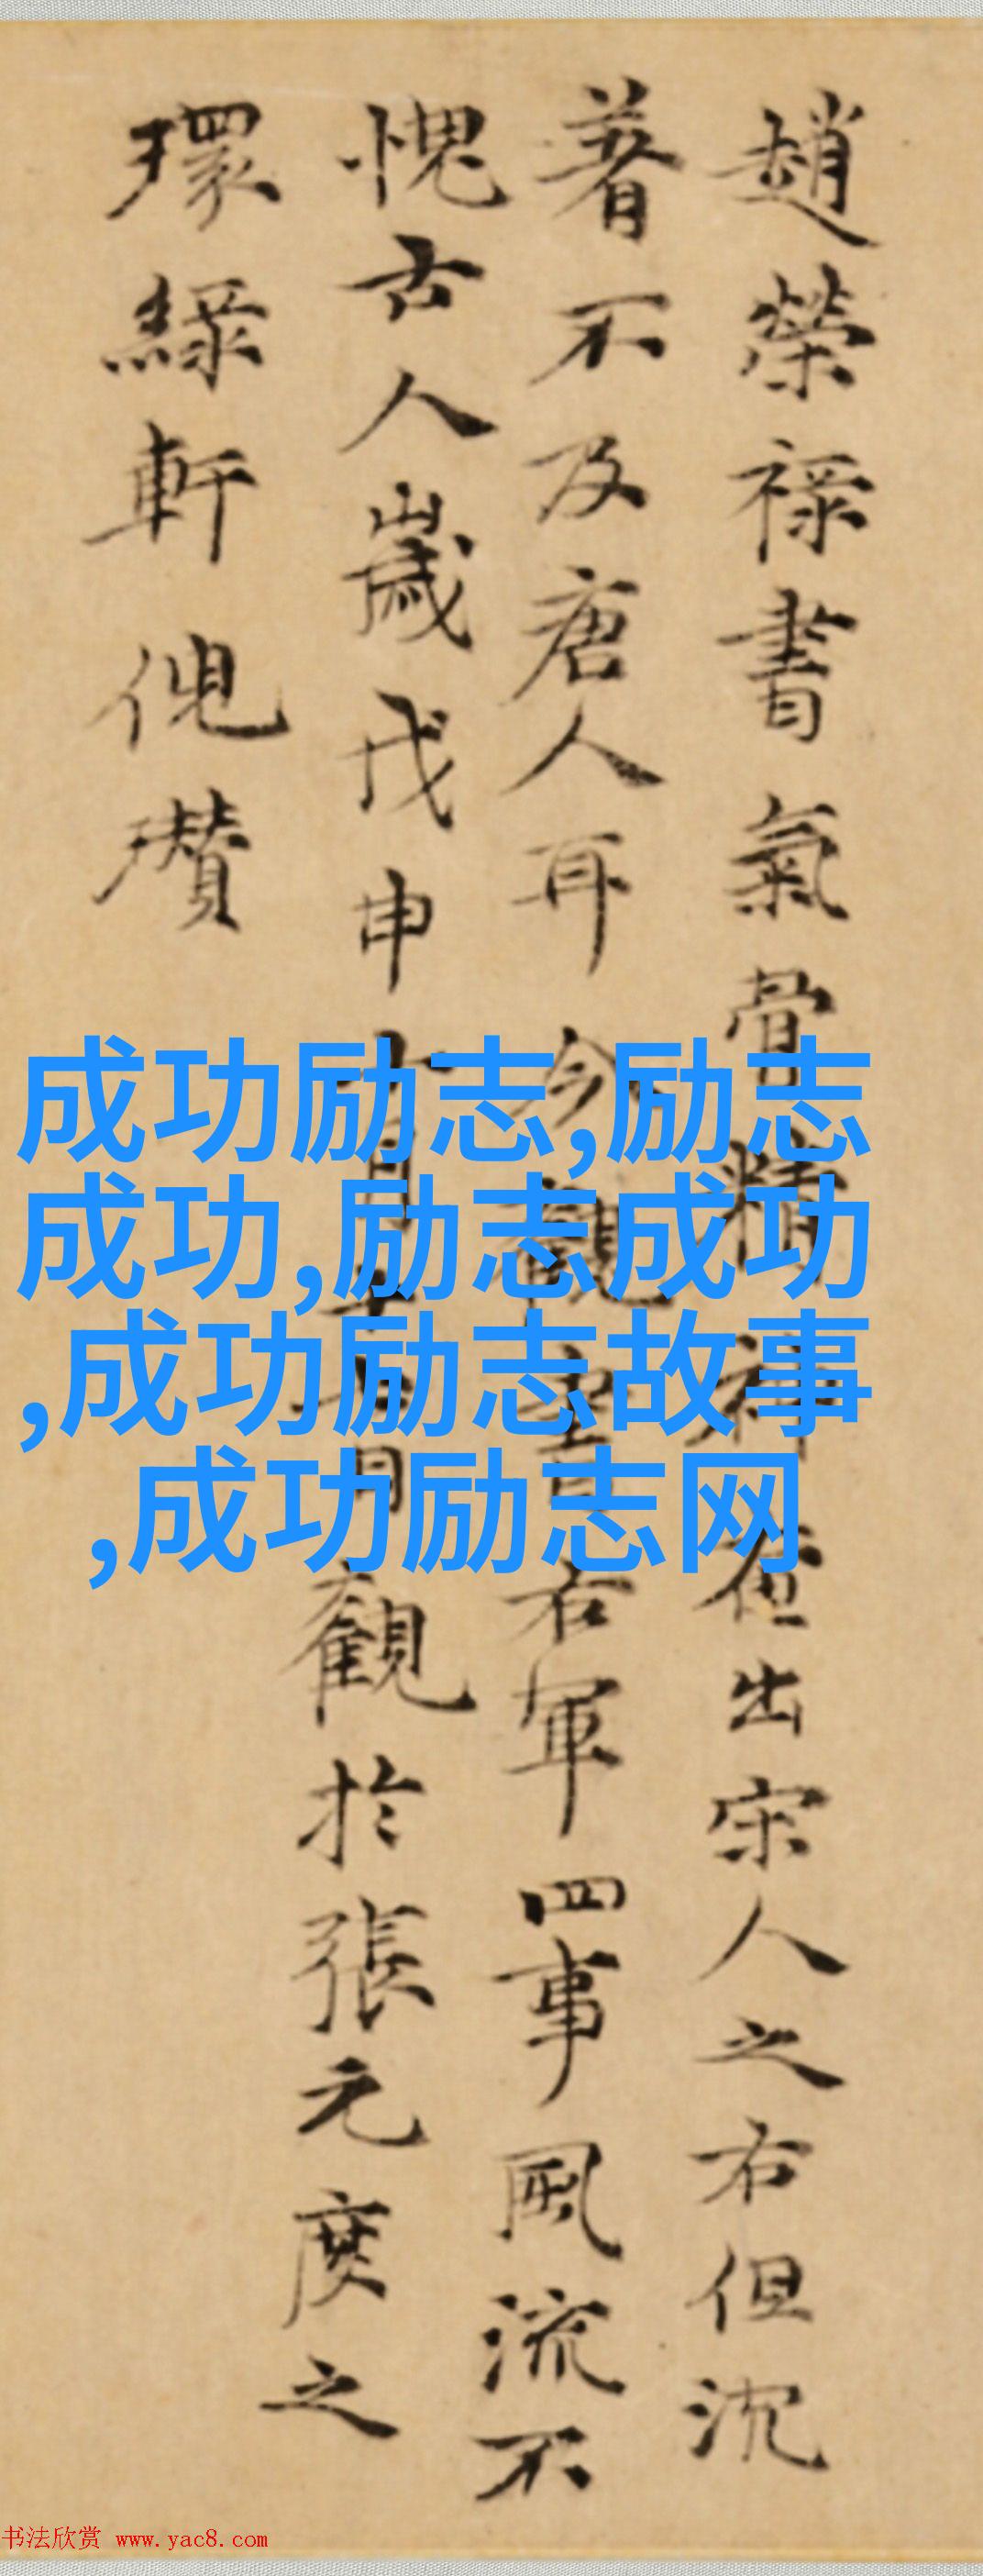 趙榮祿書氣骨精神在出宋人之右但沉
著不及唐人耳今觀書右軍四事風流不
愧古人歲戊申十月十五日觀於張元度之
環綠軒倪瓚
成功励志,励志
成功,励志成功
,成功励志故事
,成功励志网
书法欣赏 www.yac8.com